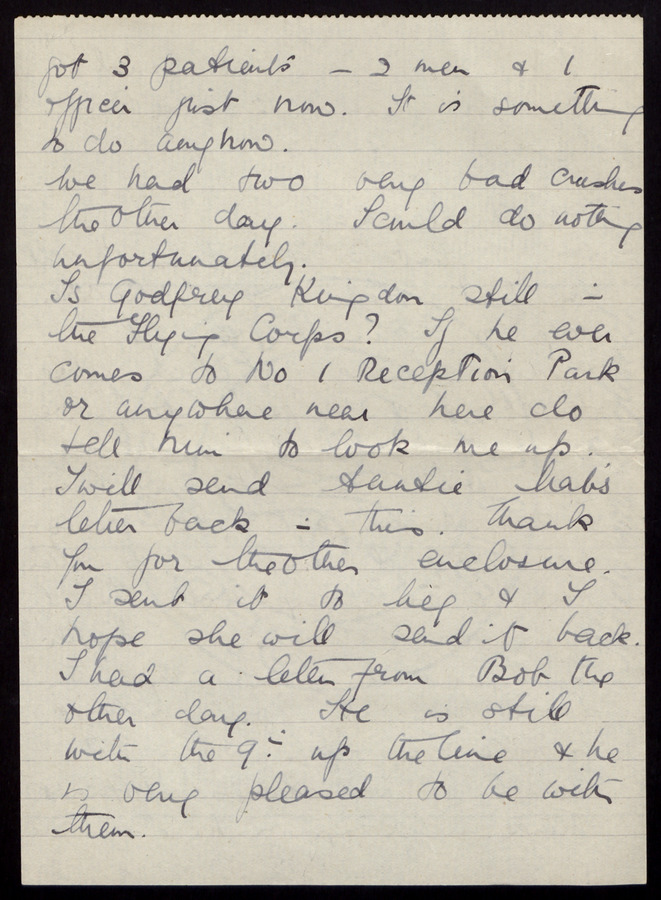 got 3 patients – 2 men & 1
officer just now. It is something
to do anyhow.
We had two very bad crashes
the other day. I could do nothing
unfortunately.
Is Godfrey Kingdon still in
the Flying Corps? If he ever
comes to No 1 Reception Park
or anywhere near here do
tell him to look me up.
I will send Auntie Mab's
letter back in this. Thank
you for the other enclosure.
I sent it to & I
hope she will send it back.
I had a letter from Bob the
other day. He is still
with the 9th up the line & he
is very pleased to be with
them.